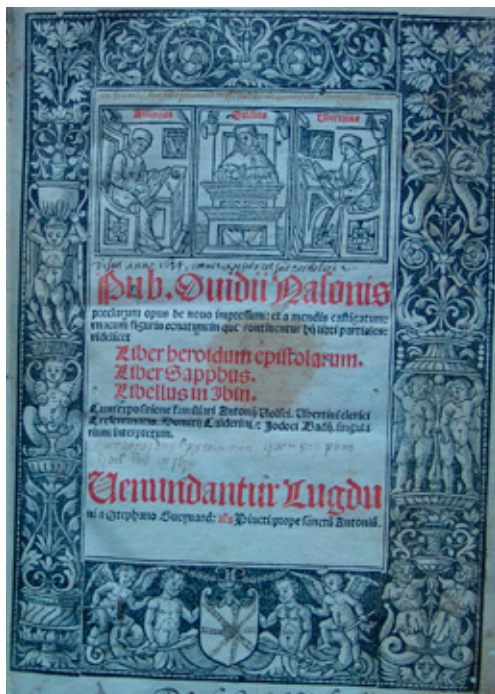 Antonius Ouidius Ubertinus
Pub. Ouidii Nasonis
preclarum opus de nouo impressum: et a mendis castigatum:
vnacum figuris ornatum in quo continentur hij libri partiales
videlicet
Liber heroidum epistolarum.
Liber Sapphus.
Libellus in Ibin.
Cum expositione familiari Antonij Volsci. Ubertini clerici
Crescentinatis. Domitij Calderini. & Jodoci Badij. singula
rium interpretum.
Uenundantur Lugdu
ni a Stephano Gueynard: al's Pineti: prope sanctū Antoniū.